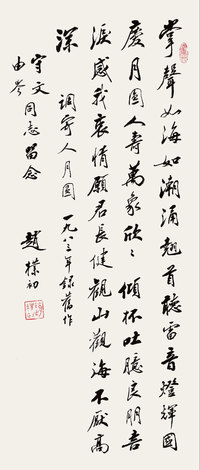 掌聲如海如潮涌翹首聽雷音燈輝國
慶月圓人壽萬象欣々傾杯吐臆良朋喜
淚感我衷情願君長健觀山觀海不厭高
深
調寄人月圓 一九八三年錄舊作
守文
由岑
同志留念
趙樸初